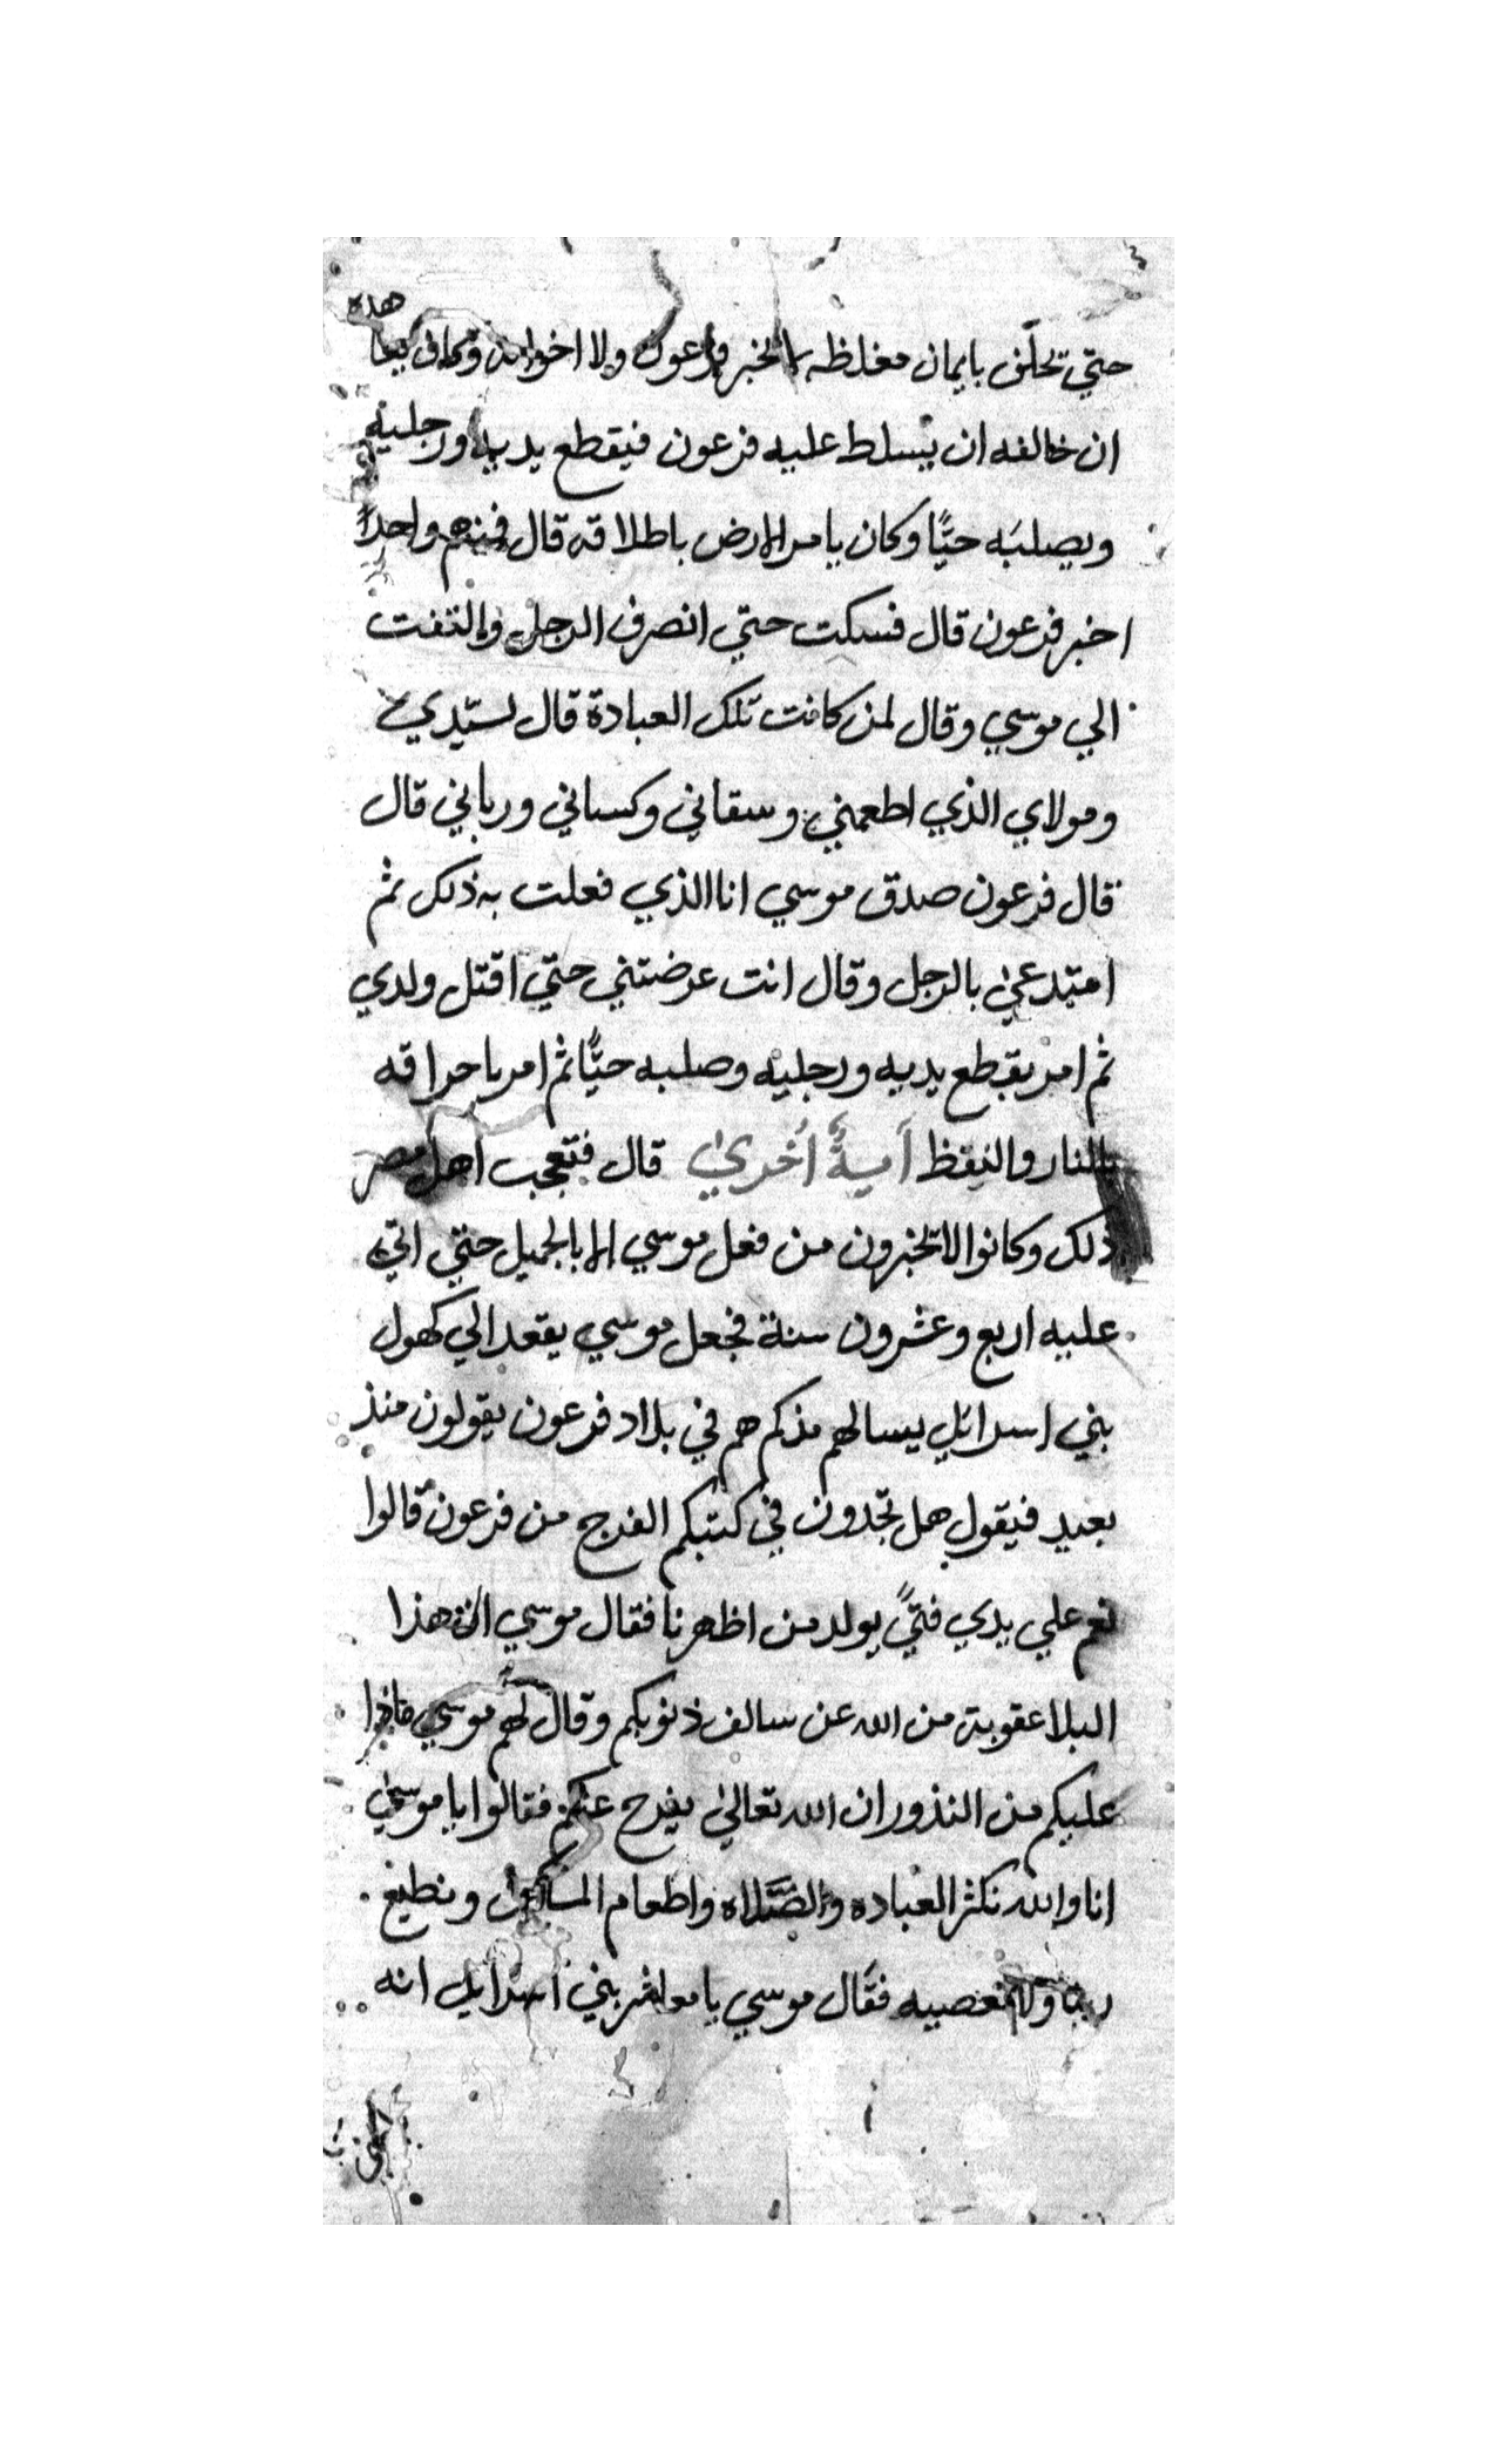 هذه
حتي تحلف بايمان مغلظه لا تخبر فرعون ولا اخوانه وكان فيها
ان خالفه ان يسلط عليه فرعون فيقطع يديه ورجليه
ويصلبه حيًّا وكان يامر الارض باطلاقه قال فندم واحدًا
اخبر فرعون قال فسكت حتي انصرف الرجل والتفت
الي موسي وقال لمن كانت تلك العبادة قال لسيّدي
ومولاي الذي اطعمني وسقاني وكساني ورباني قال
قال فرعون صدق موسي انا الذي فعلت به ذلك ثم
بالرجل وقال انت عرضتني حتي اقتل ولدي
ثم امر بقطع يديه ورجليه وصلبه حيًّا ثم امر باحراقه
بالنار والنفظ آيةٌ أُخري قال فتعجب اهل مصر
ذلك وكانوا لا تخبرون من فعل موسي الا بالجميل حتي اتي
عليه اربع وعشرون سنة فجعل موسي يقعد الي كهول
بني اسرائيل يسالهم مذكم هم في بلاد فرعون يقولون منذ
بعيد فيقول هل تجدون في كتبكم الفرج من فرعون قالوا
نعم علي يدي فتيً يولد من اظهرنا فقال موسي ان هذا
البلا عقوبة من الله عن سالف ذنوبكم وقال لهم موسي
عليكم من النذور ان الله تعالي يفرج عنكم فقالوا يا موسي
انا والله نكثر العباده والصَّلاه واطعام المساكين ونطيع
ربنا ولا نعصيه فقال موسي يا معاشر بني اسرايل انه